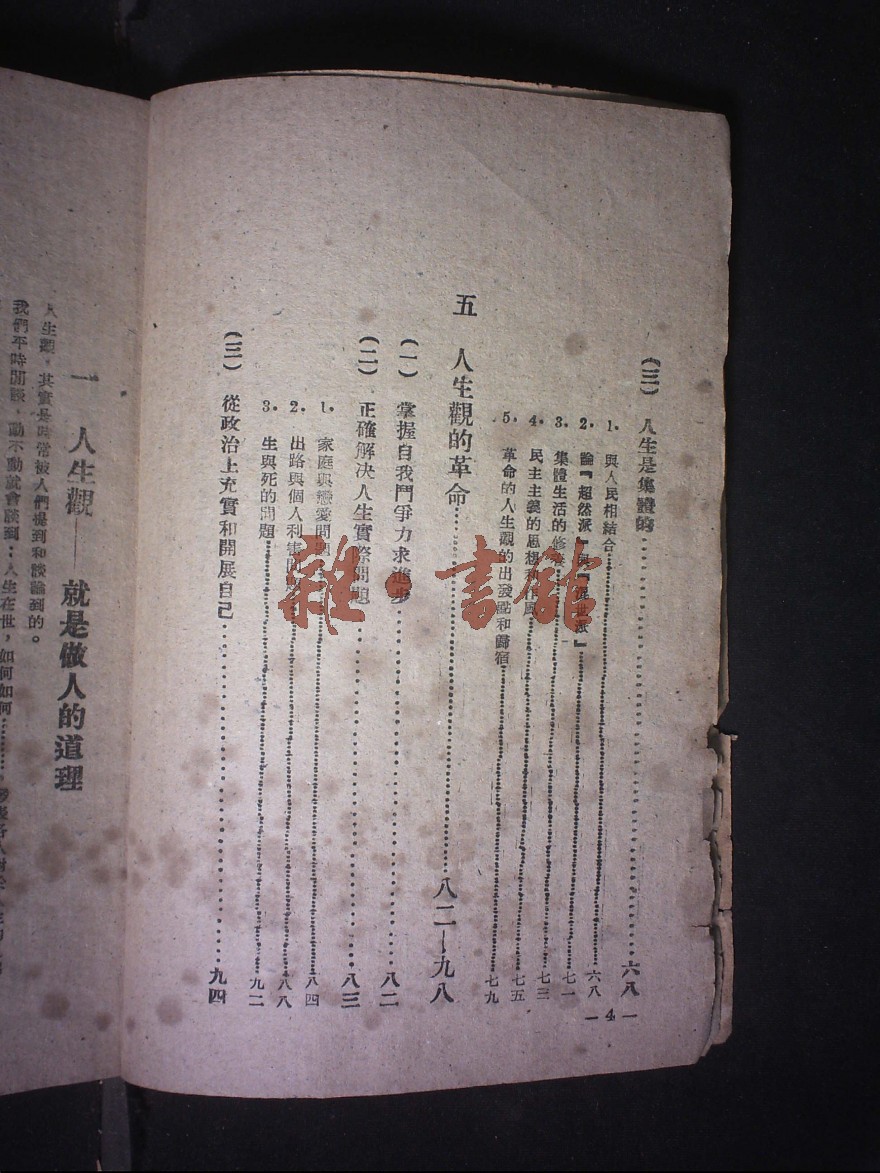 (三) 人生是集體的……六八
1. 與人民相結合……六八
2. 論『超然派』與『混世派』……七一
3. 集體生活的修養……七三
4. 民主主義的思想和作風……七五
5. 革命的人生觀的出發點和歸宿……七九
五 人生觀的革命……八二—九八
(一) 掌握自我鬥爭力求進步……八二
(二) 正確解決人生實際問題……八三
1. 家庭與戀愛問題……八四
2. 出路與個人利害問題……八八
3. 生與死的問題……九二
(三) 從政治上充實和開展自己……九四
— 4 —
雜·書館
一 人生觀——就是做人的道理
人生觀，其實是時常被人們提到和談論到的。
我們平時閒談，動不動就會談到：人生在世，如何如何………